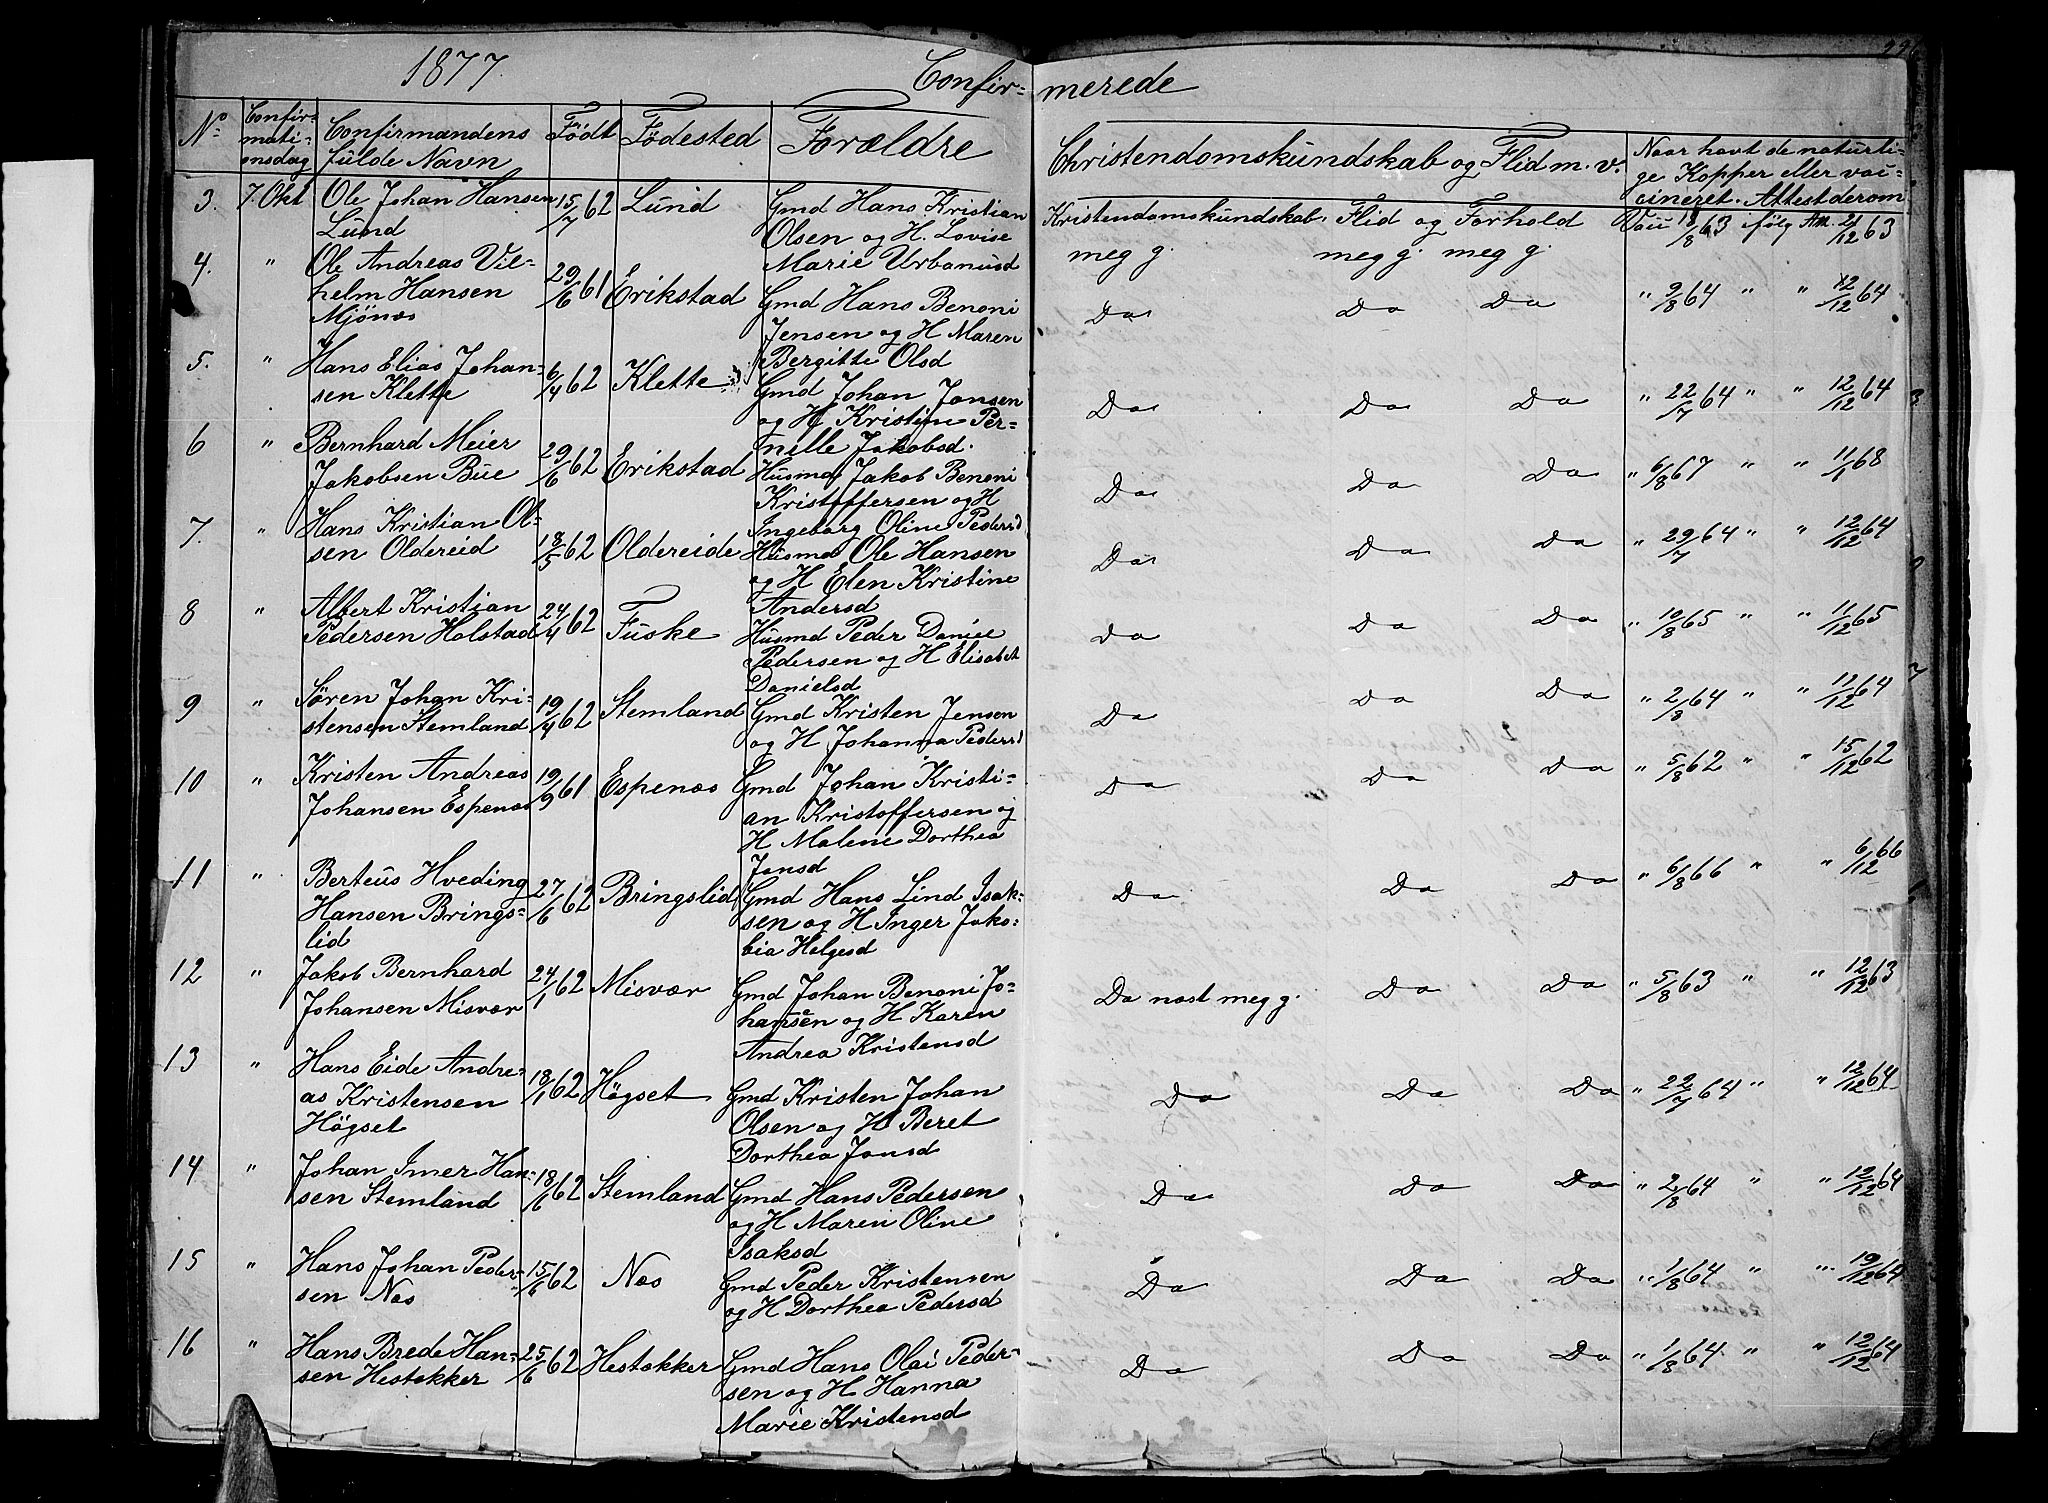 1877.
Confir=
merede
No
Confir-
mati-
onsdag
Confirmandens
fulde Navn
Födt
Födested
Forældre
Christendomskundskab og Flid m. v.
Naar havt de naturli-
ge Kopper eller vac-
cineret. Attest derom
3. 7. Okt Ole Johan Hansen
Lund
15/7 62 Lund
Gmd Hans Kristian
Olsen og H. Lovise
Marie Urbanusd
Kristendomskundskab. Flid og Forhold
meg g. meg g. meg g.
Vacc 1/8 63 ifølg Att. 21/12 63
4. " Ole Andreas Vil=
helm Hansen
Mjönes
29/6 61 Erikstad
Gmd Hans Benoni
Jensen og H Maren
Bergitte Olsd
Do Do Do " 9/8 64 " " 12/12 64
5. " Hans Elias Johan=
sen Klette
6/4 62 Klette
Gmd Johan Jonsen
og H Kristine Per=
nille Jakobsd.
Do Do Do " 22/7 64 " " 12/12 64
6 " Bernhard Meier
Jakobsen Bue
29/6 62 Erikstad
Husmd Jakob Benoni
Kristoffersen og H
Ingeborg Oline Pedersd
Do Do Do " 6/8 67 " " 11/1 68
7. " Hans Kristian Ol=
sen Oldereid
18/5 62 Oldereide
Husmd Ole Hansen
og H Elen Kristine
Andersd
Do Do Do " 29/7 64 " " 12/12 64
8 " Albert Kristian
Pedersen Holstad
24/4 62 Fuske
Husmd Peder Daniel
Pedersen og H Elisabet
Danielsd
Do Do Do " 10/8 65 " " 11/12 65
9 " Sören Johan Kri=
stensen Stemland
19/4 62 Stemland
Gmd Kristen Jensen
og H Johanna Pedersd
Do Do Do " 2/8 64 " " 12/12 64
10 " Kristen Andreas
Johansen Espenæs
19/9 61 Espenæs
Gmd Johan Kristi=
an Kristoffersen og
H Malene Dorthea
Jonsd
Do Do Do " 5/8 62 " " 15/12 62
11 " Berteus Hveding
Hansen Brings=
lid
27/6 62 Bringslid
Gmd Hans Lind Isak=
sen og H Inger Jako=
bia Helgesd
Do Do Do " 6/8 66 " " 6/12 66
12 " Jakob Bernhard
Johansen Misvær
24/1 62 Misvær
Gmd Johan Benoni Jo=
hansen og H Karen
Andrea Kristensd
Do næst meg g. Do Do " 5/8 63 " " 12/12 63
13 " Hans Eide Andre=
as Kristensen
Högset
18/1 62 Högset
Gmd Kristen Johan
Olsen og H Beret
Dorthea Jonsd
Do Do Do " 22/7 64 " " 12/12 64
14 " Johan Imer Han=
sen Stemland
18/6 62 Stemland
Gmd Hans Pedersen
og H Maren Oline
Isaksd
Do Do Do " 2/8 64 " " 12/12 64
15 " Hans Johan Peder=
sen Næs
15/6 62 Næs
Gmd Peder Kristensen
og H Dorthea Pedersd
Do Do Do " 1/8 64 " " 19/12 64
16 " Hans Brede Han=
sen Hestekker
25/6 62 Hestekker
Gmd Hans Olai Peder=
sen og H Hanna
Marie Kristensd
Do Do Do " 1/8 64 " " 12/12 64